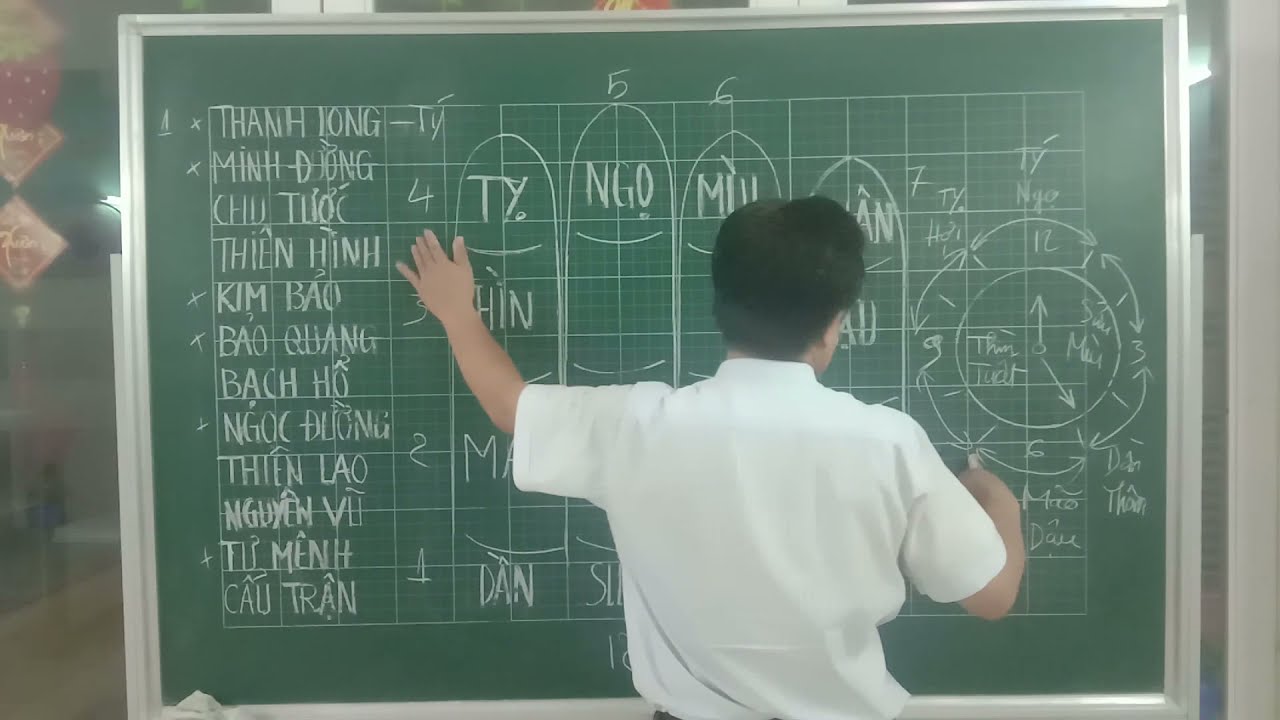 5 6
1 x THANH LONG – TÝ
x MINH ĐƯỜNG
CHU TƯỚC 4
THIÊN HÌNH
x KIM BẢO 3
x BẢO QUANG
BẠCH HỔ
x NGỌC ĐƯỜNG
THIÊN LAO 2
NGUYÊN VŨ
x TƯ MỆNH
CẤU TRẬN 1
TỴ NGỌ MÙI
DẦN
7
Tý
Ngọ
Tỵ
Hợi
12
Sửu
Mùi
3
Thìn
Tuất
9
6
Dần
Thân
Mão
Dậu